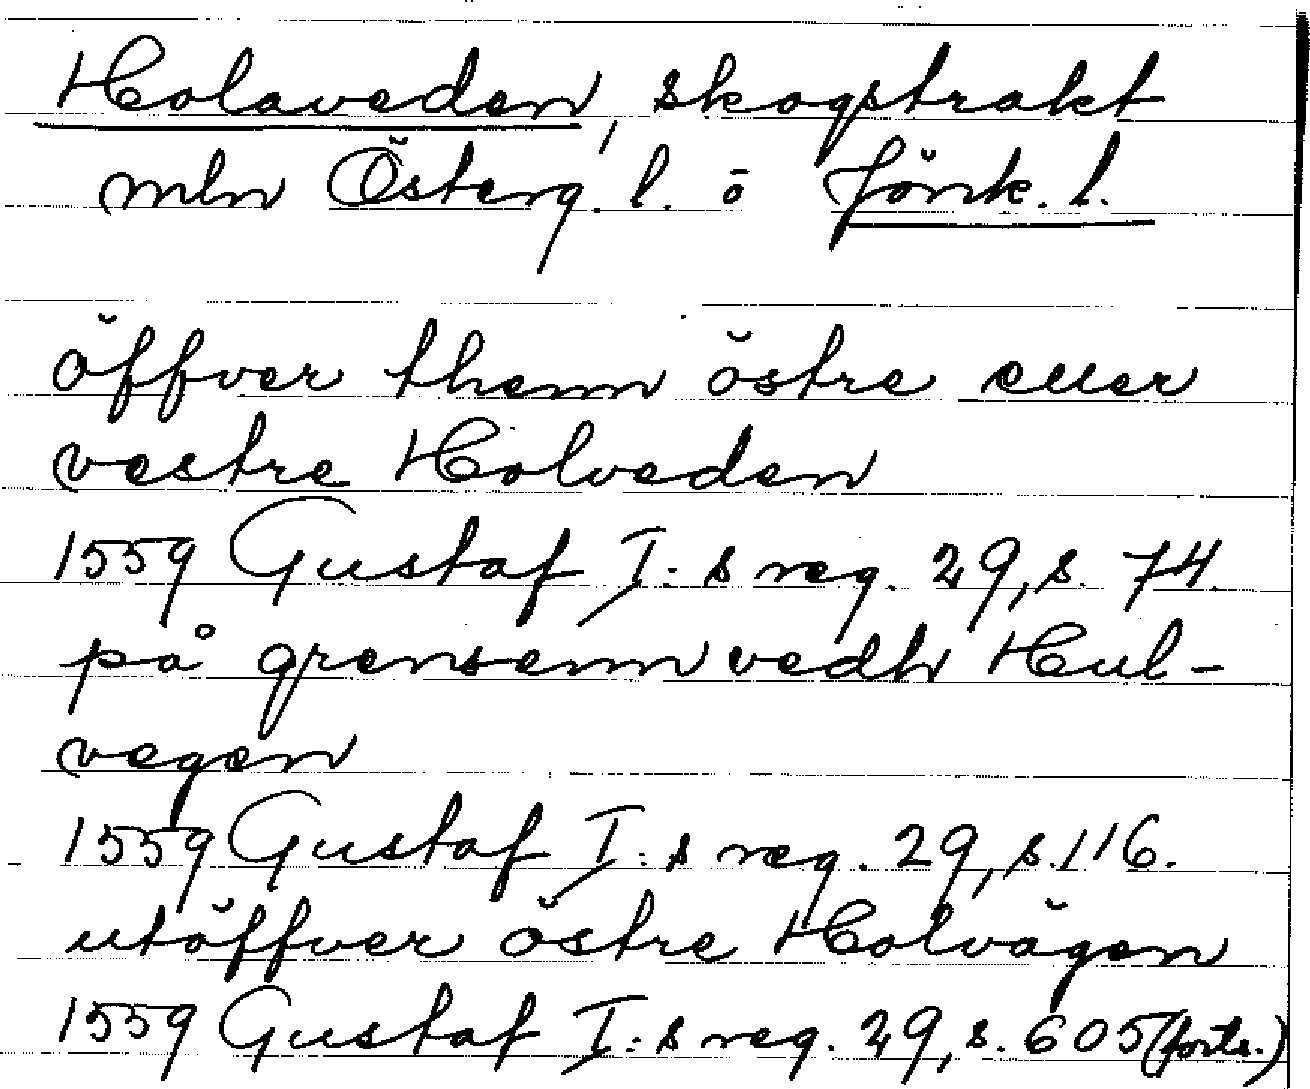 Holaveden, skogstrakt
mln Österg. l. o Jönk. l.
öffver them östre eller
vestre Holveden
1559 Gustaf I:s reg. 29, s. 74.
på grensenn vedh Hul-
vegen
1559 Gustaf I:s reg. 29, s. 116.
utöffver östre Holvägen
1559 Gustaf I:s reg. 29, s. 605 (forts.)